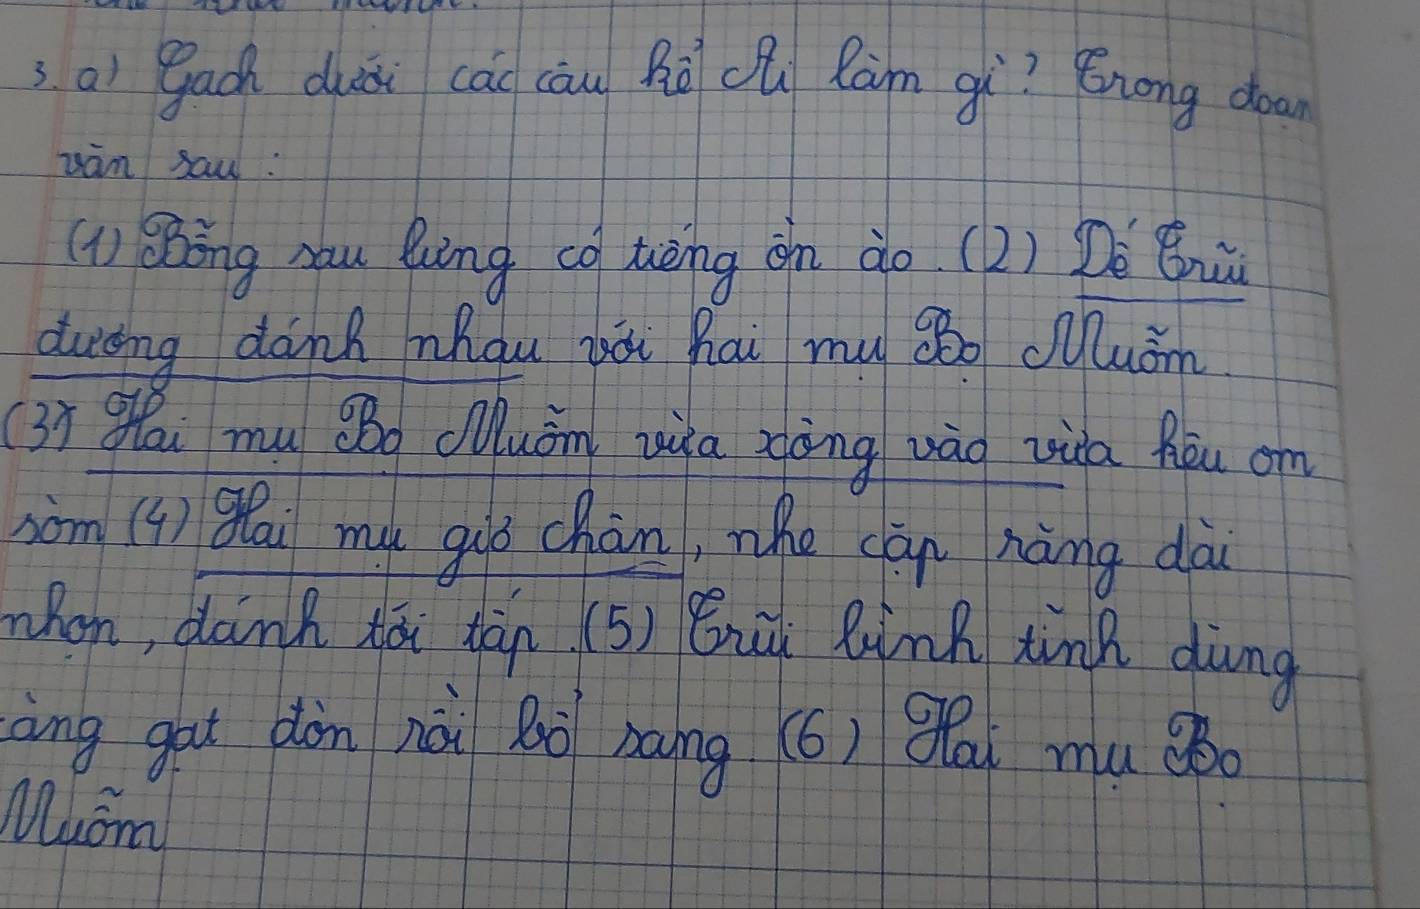 3. a) Gạch dưới các câu kể Ai làm gì? Trong đoạn
văn sau:
(1) Bỗng sau lưng có tiếng ồn ào. (2) Dế Trũi
đương đánh nhau với hai mụ Bọ Muỗm.
(3) Hai mụ Bọ Muỗm vừa xông vào vừa kêu om
sòm (4) Hai mụ giơ chân, nhe cặp răng dài
nhọn, đánh tới tấp. (5) Trũi bình tĩnh dùng
càng gạt đòn rồi bổ sang. (6) Hai mụ Bọ
Muỗm